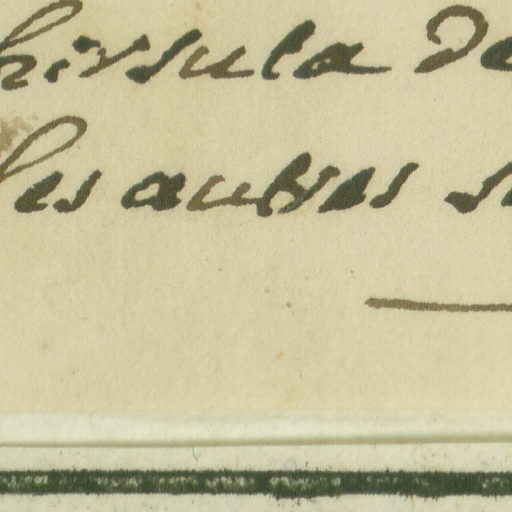 hirsula de
les autres s